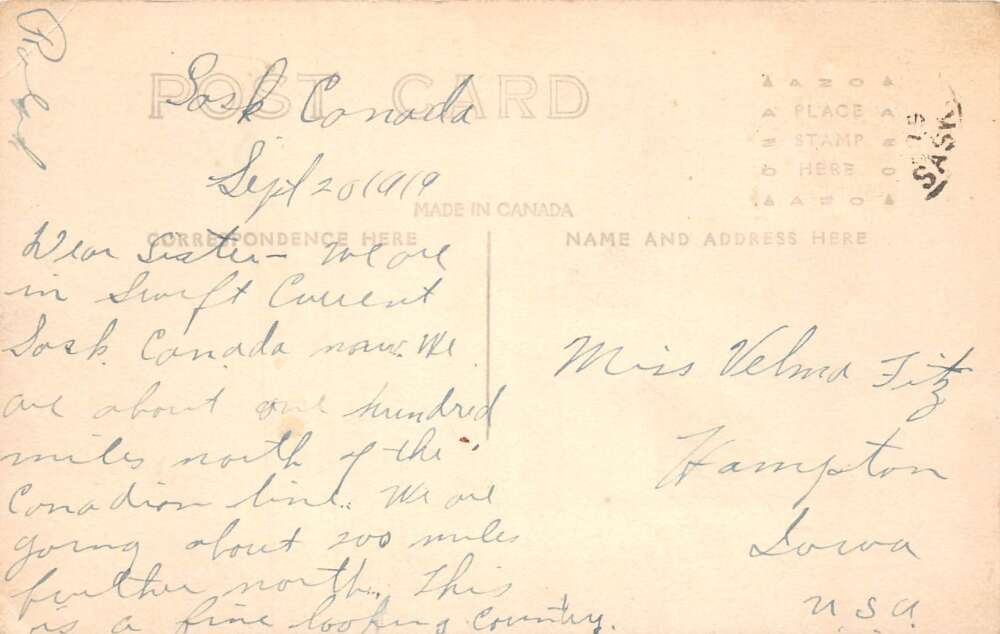 POST CARD
Sask Canada
Sept 20 1919
MADE IN CANADA
CORRESPONDENCE HERE
NAME AND ADDRESS HERE
AZO
PLACE
STAMP
HERE
AZO
SASK
Dear Sister - We are
in Swift Current
Sask. Canada now. We
are about one hundred
miles north of the
Canadian line. We are
going about 200 miles
further north. This
is a fine looking country.
Miss Velma Fitz
Hampton
Iowa
U S A